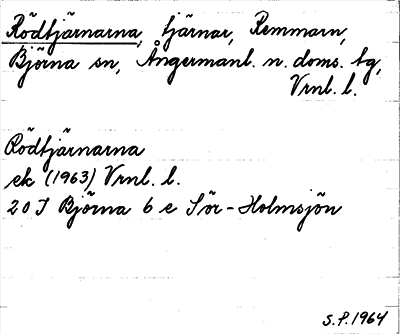 Rödtjärnarna, tjärnar, Remmarn,
Björna sn, Ångermanl. n. doms. tg,
Vrnl. l.
Rödtjärnarna
ek (1963) Vrnl. l.
20 I Björna 6 e Sör-Holmsjön
S.P. 1964